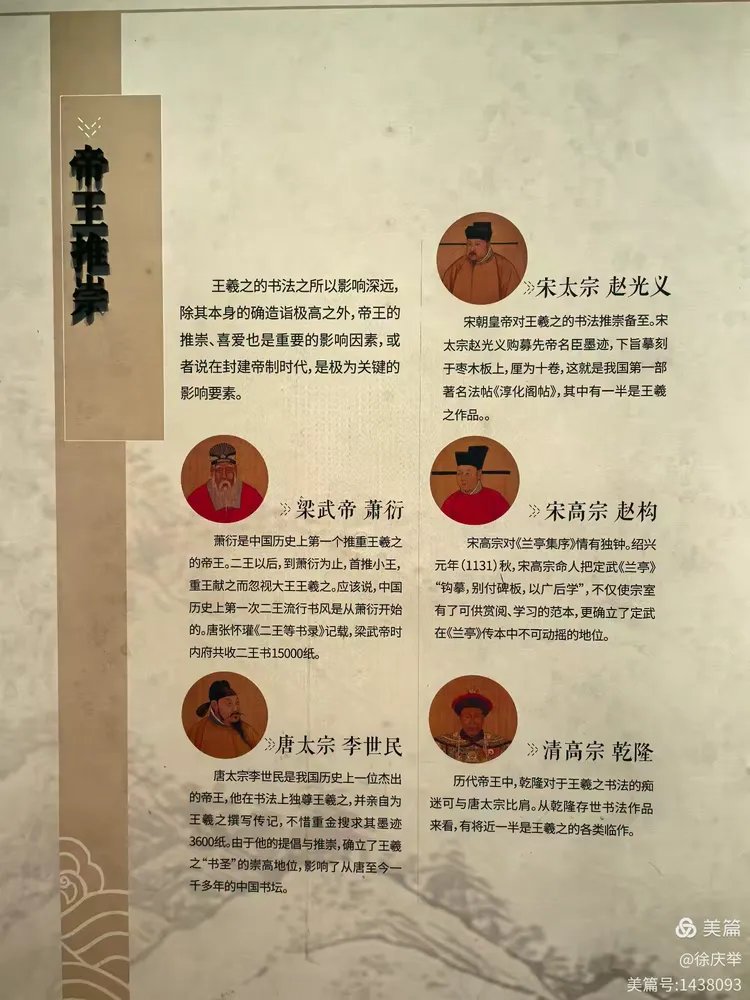 帝王推崇
王羲之的书法之所以影响深远,
除其本身的确造诣极高之外,帝王的
推崇、喜爱也是重要的影响因素,或
者说在封建帝制时代,是极为关键的
影响要素。
梁武帝 萧衍
萧衍是中国历史上第一个推重王羲之
的帝王。二王以后,到萧衍为止,首推小王,
重王献之而忽视大王王羲之。应该说,中国
历史上第一次二王流行书风是从萧衍开始
的。唐张怀瓘《二王等书录》记载,梁武帝时
内府共收二王书15000纸。
唐太宗 李世民
唐太宗李世民是我国历史上一位杰出
的帝王,他在书法上独尊王羲之,并亲自为
王羲之撰写传记,不惜重金搜求其墨迹
3600纸。由于他的提倡与推崇,确立了王羲
之“书圣”的崇高地位,影响了从唐至今一
千多年的中国书坛。
宋太宗 赵光义
宋朝皇帝对王羲之的书法推崇备至。宋
太宗赵光义购募先帝名臣墨迹,下旨摹刻
于枣木板上,厘为十卷,这就是我国第一部
著名法帖《淳化阁帖》,其中有一半是王羲
之作品。。
宋高宗 赵构
宋高宗对《兰亭集序》情有独钟。绍兴
元年(1131)秋,宋高宗命人把定武《兰亭》
“钩摹,别付碑板,以广后学”,不仅使宗室
有了可供赏阅、学习的范本,更确立了定武
在《兰亭》传本中不可动摇的地位。
清高宗 乾隆
历代帝王中,乾隆对于王羲之书法的痴
迷可与唐太宗比肩。从乾隆存世书法作品
来看,有将近一半是王羲之的各类临作。
美篇
@徐庆举
美篇号:1438093